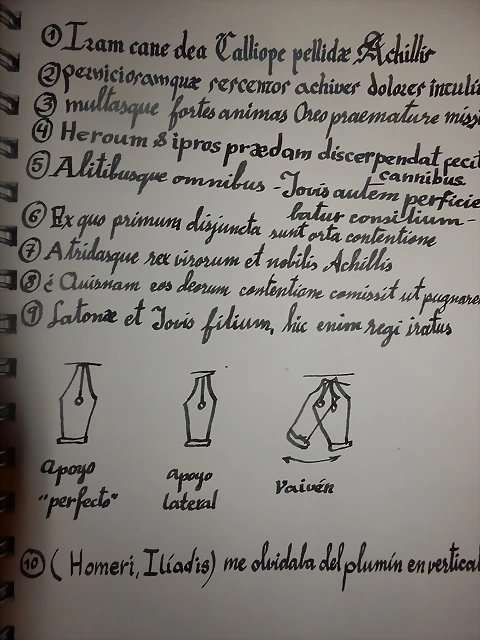 ① Iram cane dea Calliope pellidæ Achillis
② perniciosamquæ sercentos achivis dolores intulit
③ multasque fortes animas Oreo praemature miss
④ Heroum & ipros prædam discerpendat fecit
cannibus
⑤ Alitibusque omnibus - Jovis autem perficie
batur consilium -
⑥ Ex quo primum disjuncta sunt orta contentione
⑦ Atridasque rex virorum et nobilis Achillis
⑧ ¿ Quisnam eos deorum contentione comissit ut pugnare
⑨ Latonæ et Jovis filium, hic enim regi iratus
apoyo
"perfecto"
apoyo
lateral
Vaivén
⑩ ( Homeri, Ilíadis) me olvidaba del plumín en vertical